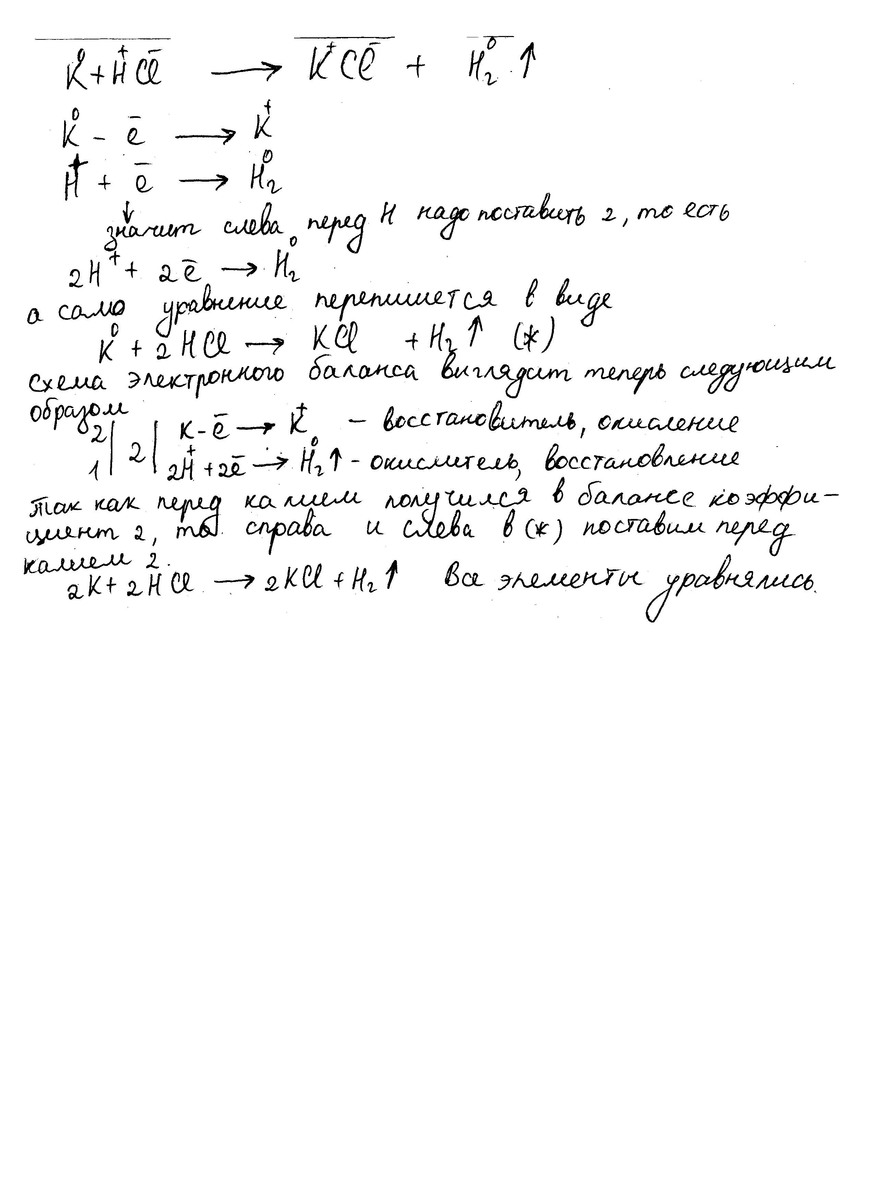 K⁰ + H⁺Cl⁻ → K⁺Cl⁻ + H₂⁰ ↑
K⁰ - e̅ → K⁺
H⁺ + e̅ → H₂⁰
↓
значит слева перед H надо поставить 2, то есть
2H⁺ + 2e̅ → H₂⁰
а само уравнение перепишется в виде
K⁰ + 2HCl → KCl + H₂↑ (*)
схема электронного баланса виглядит теперь следующим
образом
2| |2| K - e̅ → K⁺ - восстановитель, окисление
1| 2H⁺ + 2e̅ → H₂⁰↑ - окислитель, восстановление
Так как перед калием получился в балансе коэффи-
циент 2, то справа и слева в (*) поставим перед
калием 2.
2K + 2HCl → 2KCl + H₂↑ Все элементы уравнялись.